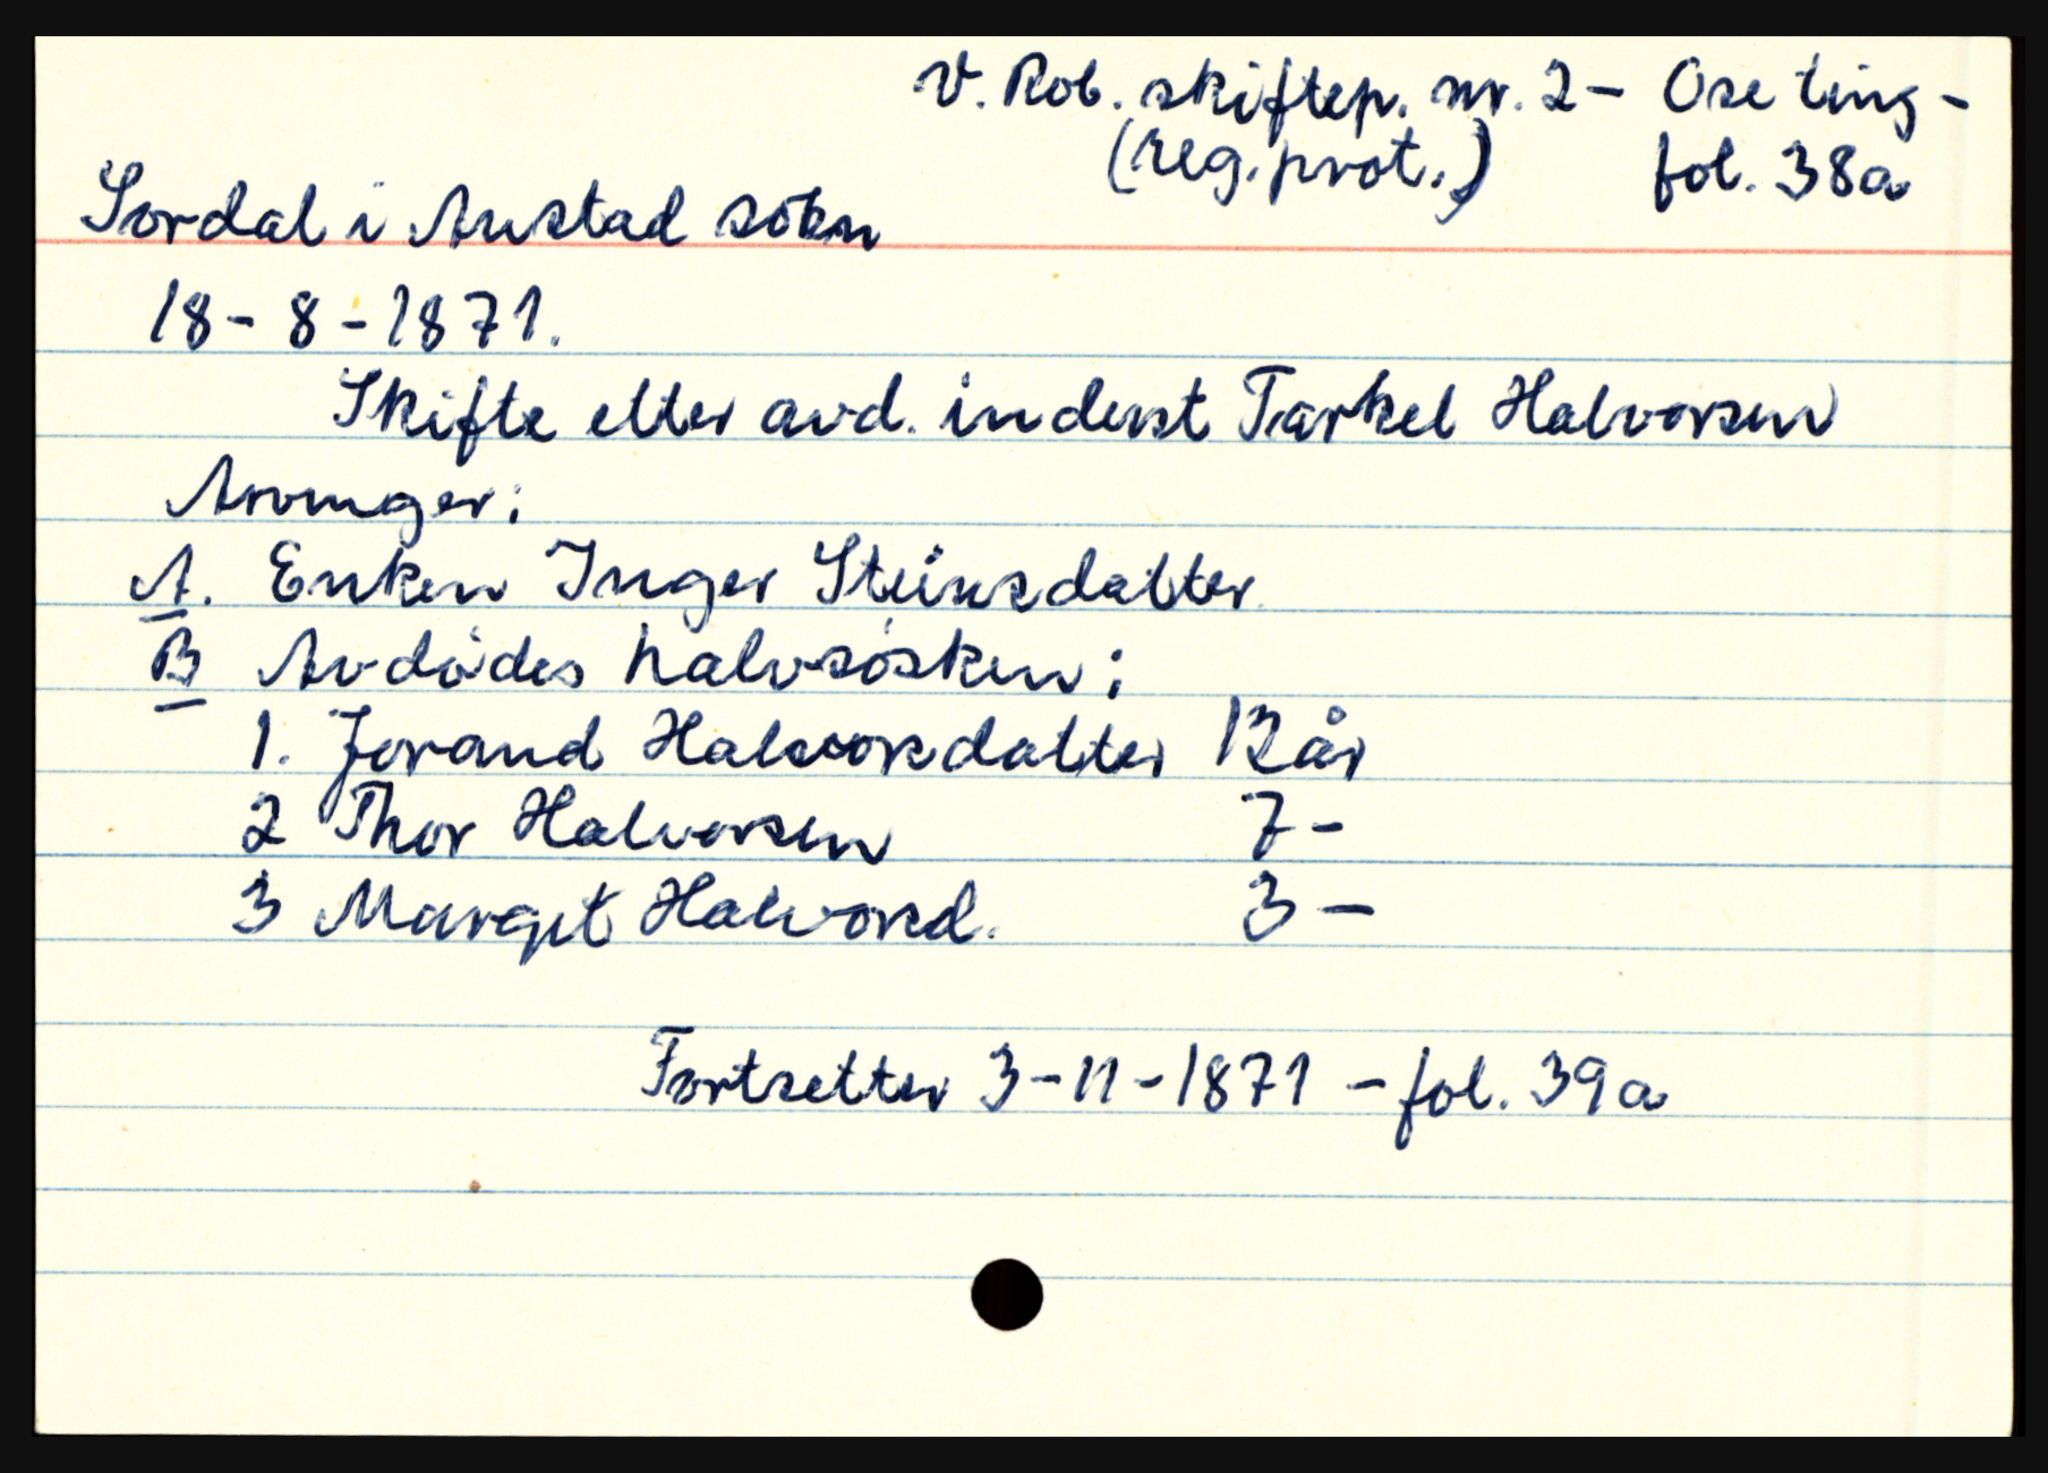 V. Rob. skiftep. nr. 2 - Ose ting -
(reg. prot.) fol. 38a
Sordal i Austad sokn
18 - 8 - 1871.
Skifte etter avd. inderst Tarkel Halvorsen
Arvinger:
A. Enken Inger Steinsdatter
B Avdødes halvsøsken:
1. Jorand Halvorsdatter 12 år
2 Thor Halvorsen 7 -
3 Margit Halvorsd. 3 -
Fortsetter 3 - 11 - 1871 - fol. 39a